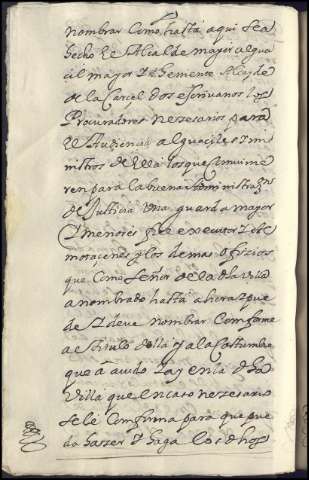 nombrar como hasta aqui se a
hecho Un Alcalde mayor algua
cil mayor Then temente Alcayde
de la Carcel dos escrivanos los
Procuradores nesesarios para
el Audiencia alguaciles o mi
nistros de ella los que convinie
ren para la buena administraz.on
de Justicia Una guarda mayor
y menores fiel executor y Al
motaçenes y los demas oficios
que como Señor de la dha Villa
a nombrado hasta ahora y pue
de y deve nombrar Comforme
a el titulo della y a la Costumbre
que a avido y ay en la dha
Villa que en caso nesesario
se le Comfirma para que pue
da hasser y haga los dhos